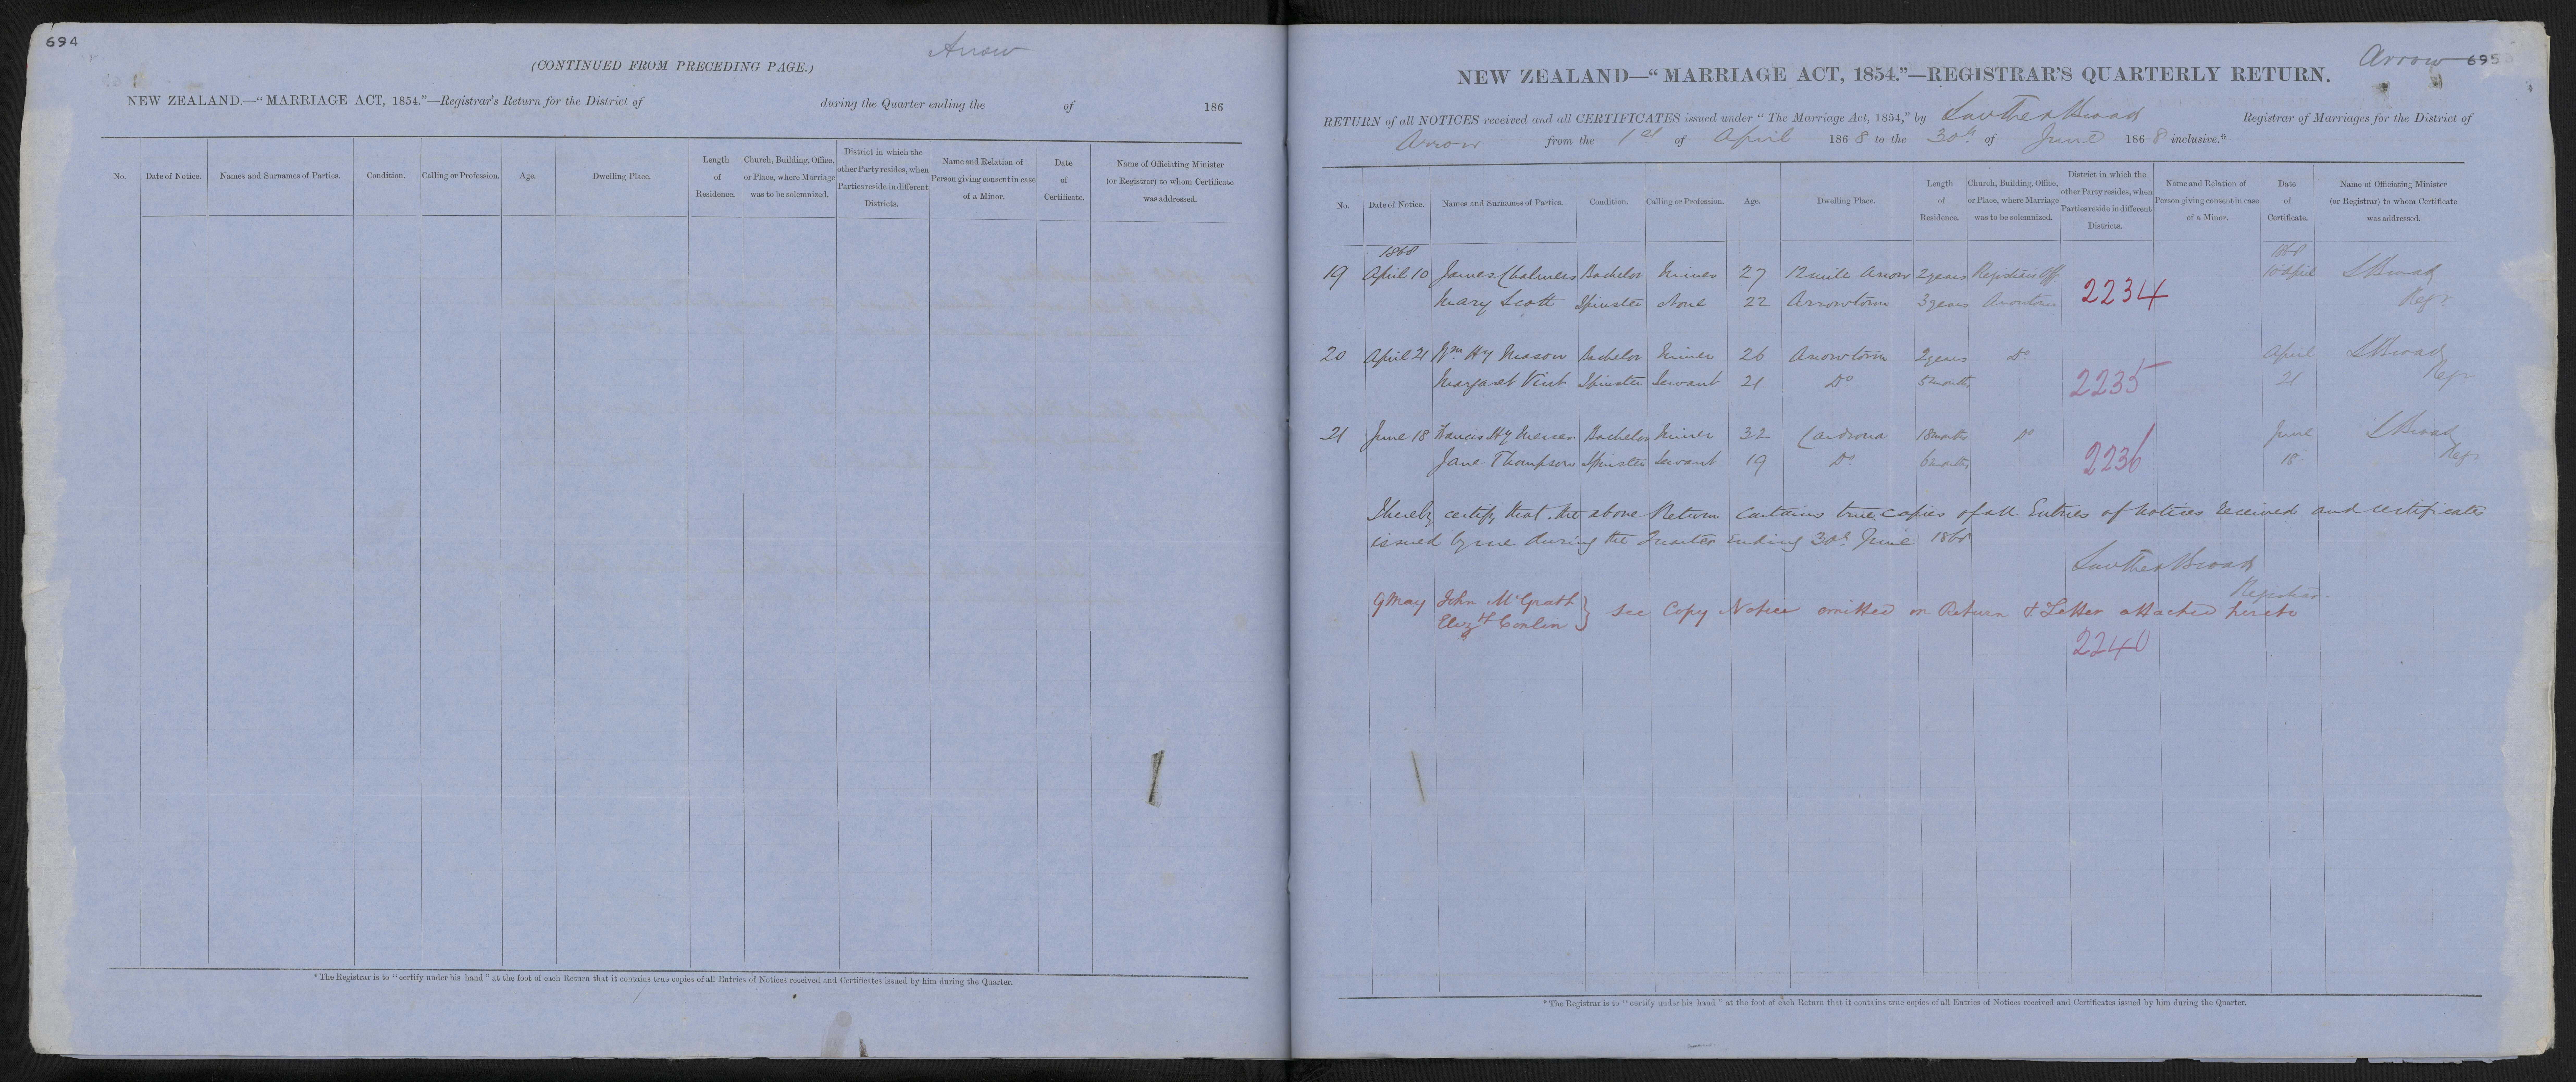 694
Arrow
(CONTINUED FROM PRECEDING PAGE.)
NEW ZEALAND.—"MARRIAGE ACT, 1854."—Registrar's Return for the District of during the Quarter ending the of 186
No. Date of Notice. Names and Surnames of Parties. Condition. Calling or Profession. Age. Dwelling Place. Length of Residence. Church, Building, Office, or Place, where Marriage was to be solemnized. District in which the other Party resides, when Parties reside in different Districts. Name and Relation of Person giving consent in case of a Minor. Date of Certificate. Name of Officiating Minister (or Registrar) to whom Certificate was addressed.
* The Registrar is to "certify under his hand" at the foot of each Return that it contains true copies of all Entries of Notices received and Certificates issued by him during the Quarter.
Arrow 695
NEW ZEALAND—"MARRIAGE ACT, 1854."—REGISTRAR'S QUARTERLY RETURN.
RETURN of all NOTICES received and all CERTIFICATES issued under "The Marriage Act, 1854," by Lowther Broad Registrar of Marriages for the District of
Arrow from the 1st of April 1868 to the 30th of June 1868 inclusive.*
No. Date of Notice. Names and Surnames of Parties. Condition. Calling or Profession. Age. Dwelling Place. Length of Residence. Church, Building, Office, or Place, where Marriage was to be solemnized. District in which the other Party resides, when Parties reside in different Districts. Name and Relation of Person giving consent in case of a Minor. Date of Certificate. Name of Officiating Minister (or Registrar) to whom Certificate was addressed.
1868 1868
19 April 10 James Chalmers Bachelor Miner 27 12 mile Arrow 2 years Registrars Off. 10 April L Broad
Mary Scott Spinster None 22 Arrowtown 3 years Arrowtown 2234 Regr
20 April 21 Wm Hy Mason Bachelor Miner 26 Arrowtown 2 years Do April L Broad
Margaret Vint Spinster Servant 21 Do 5 months 2235 21 Regr
21 June 18 Francis Hy Mercer Bachelor Miner 32 Cardrona 18 months Do June L Broad
Jane Thompson Spinster Servant 19 Do 6 months 2236 18 Regr
I hereby certify that the above Return contains true copies of all Entries of notices received and certificates
issued by me during the Quarter ending 30th June 1868
Lowther Broad
Registrar
9 May John McGrath } see Copy Notice omitted on Return & Letter attached hereto
Elizth Conlin
2240
* The Registrar is to "certify under his hand" at the foot of each Return that it contains true copies of all Entries of Notices received and Certificates issued by him during the Quarter.